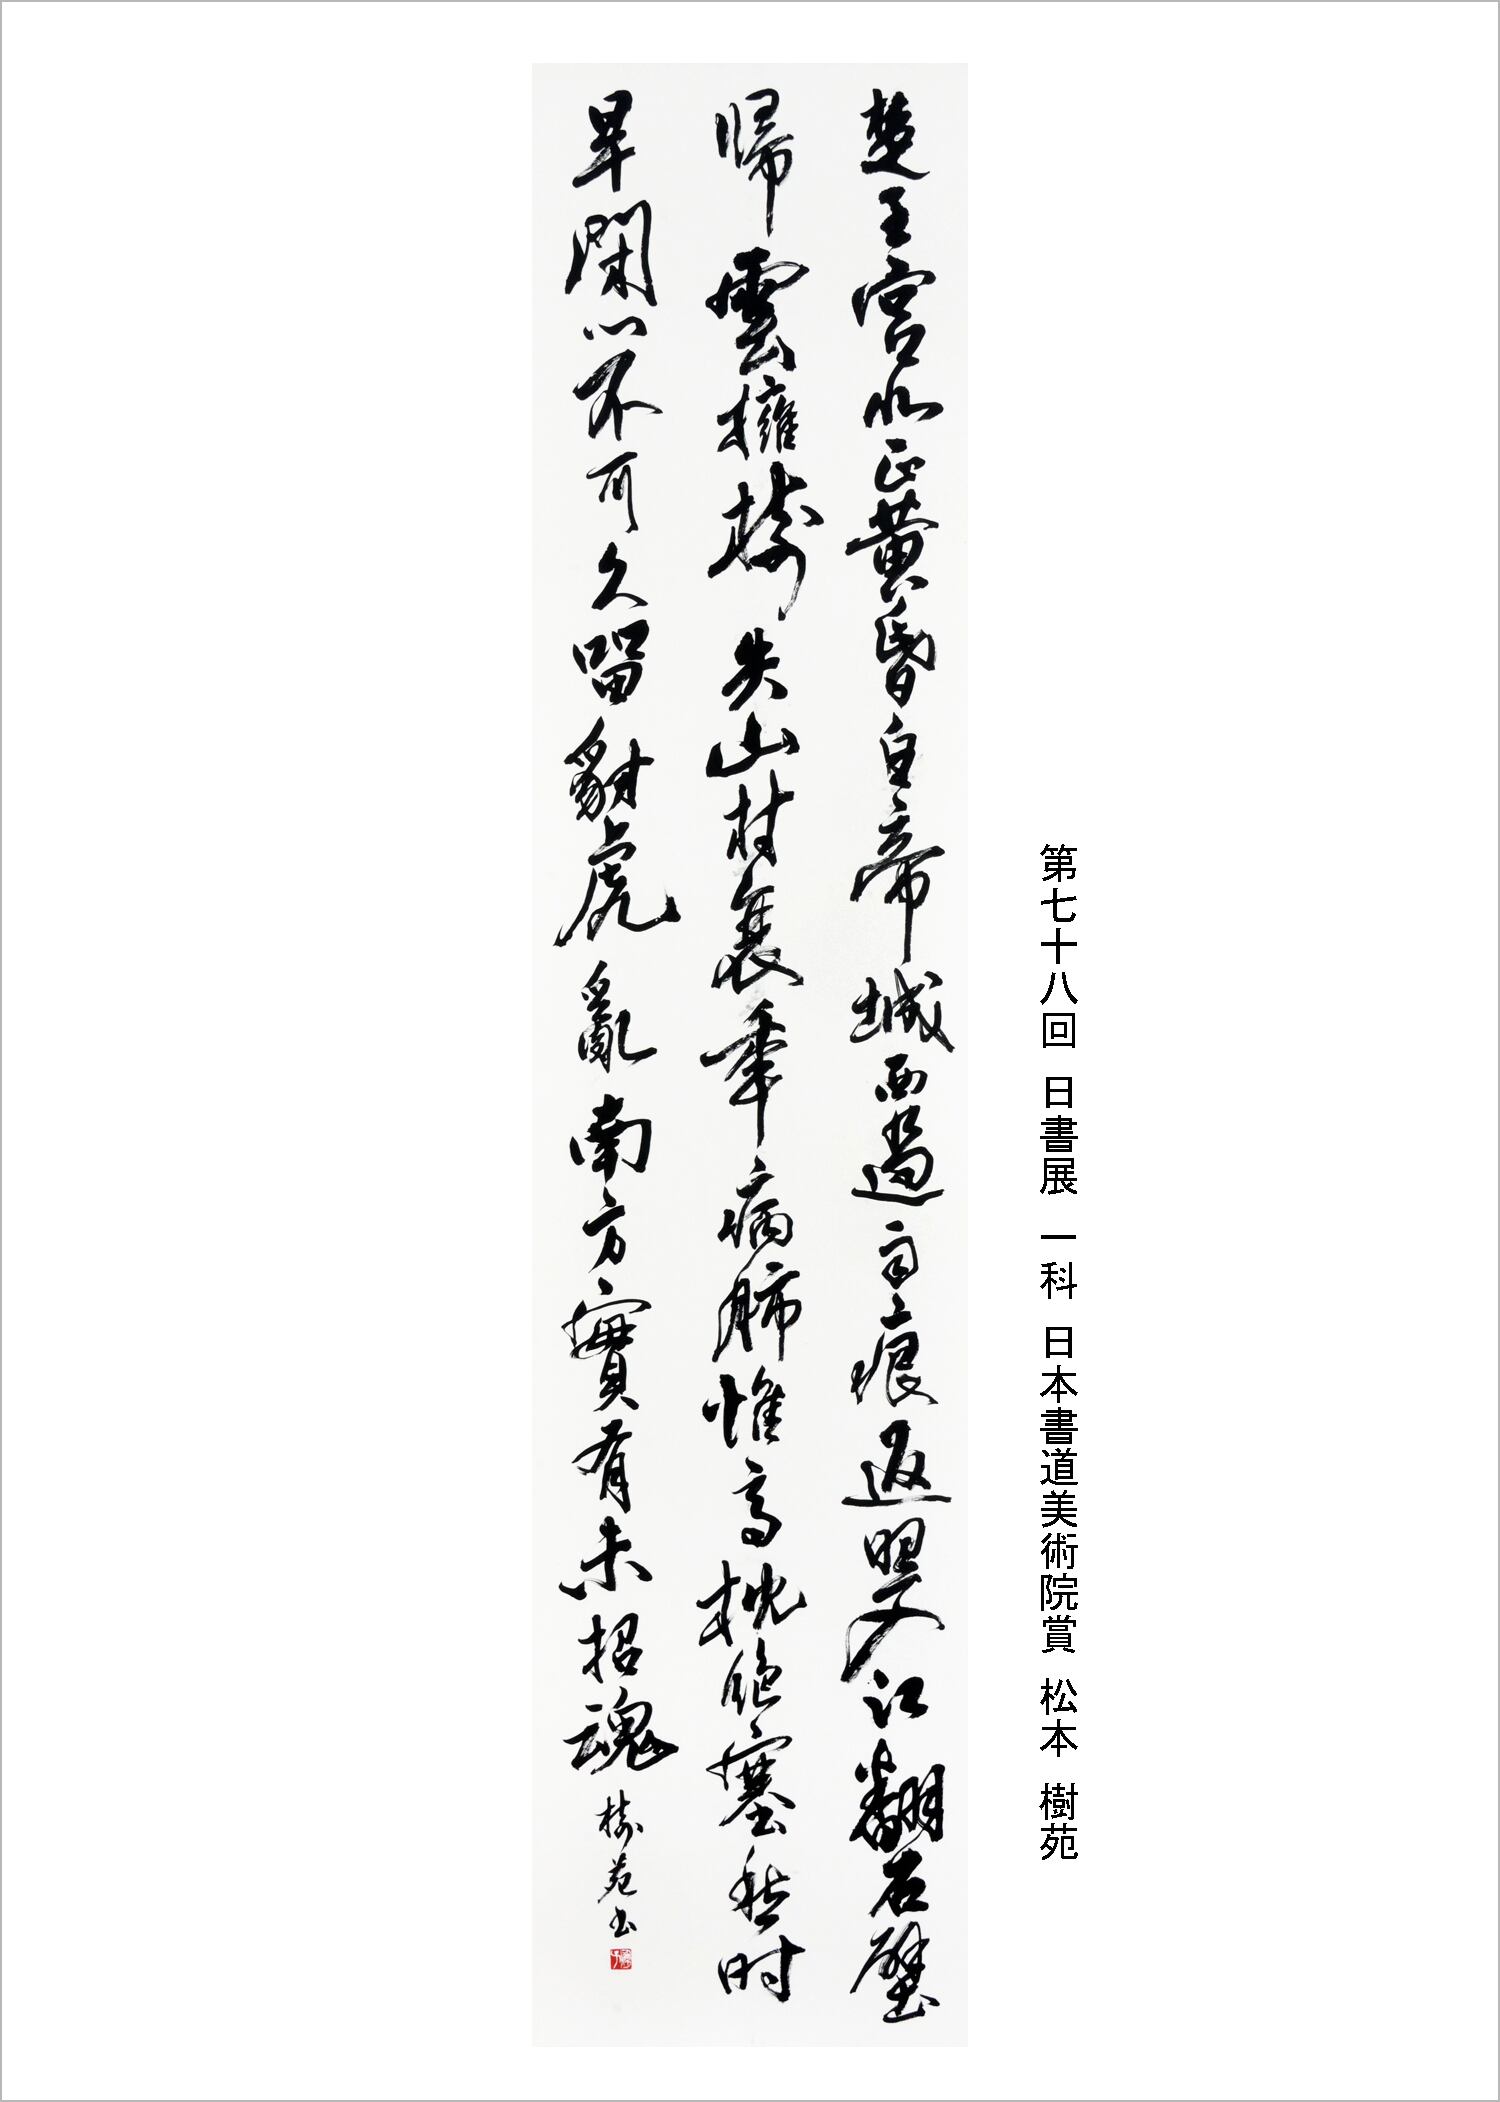 第七十八回 日書展 一科 日本書道美術院賞 松本 樹苑
楚王宮北正黄昏白帝城西過雨痕返照入江翻石壁
帰雲擁樹失山村衰年病肺惟高枕絶塞愁時
早閉門不可久留豺虎亂南方實有未招魂 樹苑書